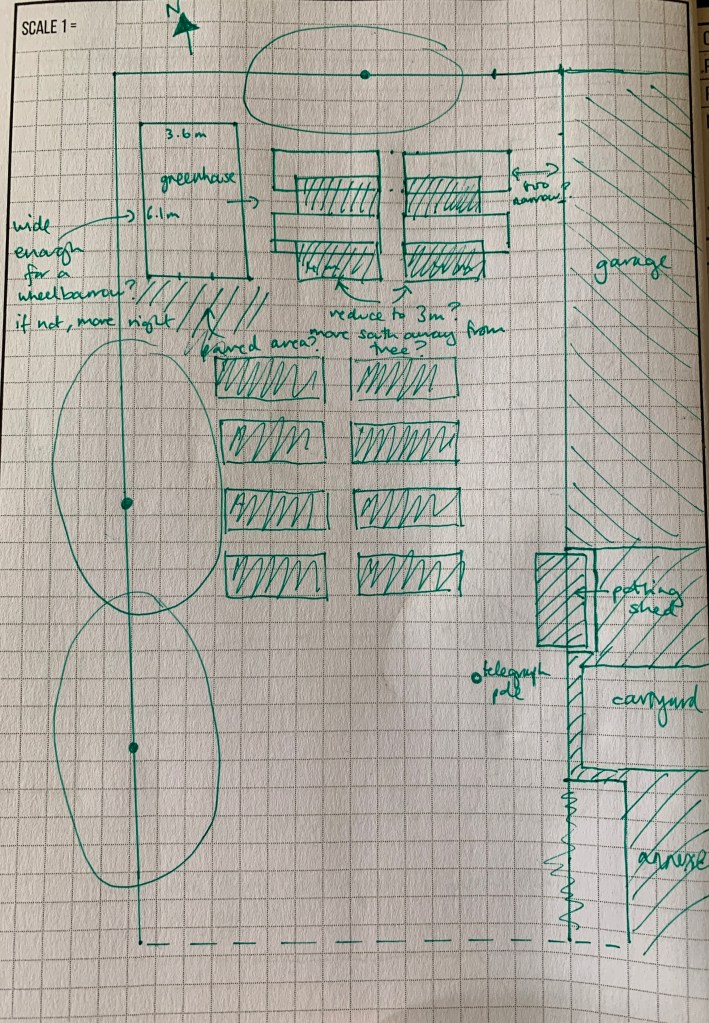 SCALE 1 =
N
3.6m
greenhouse
6.1m
too
narrow?
wide
enough
for a
wheelbarrow?
if not, move right
paved area?
reduce to 3m?
move south away from
tree?
garage
potting
shed
telegraph
pole
carryard
annexe